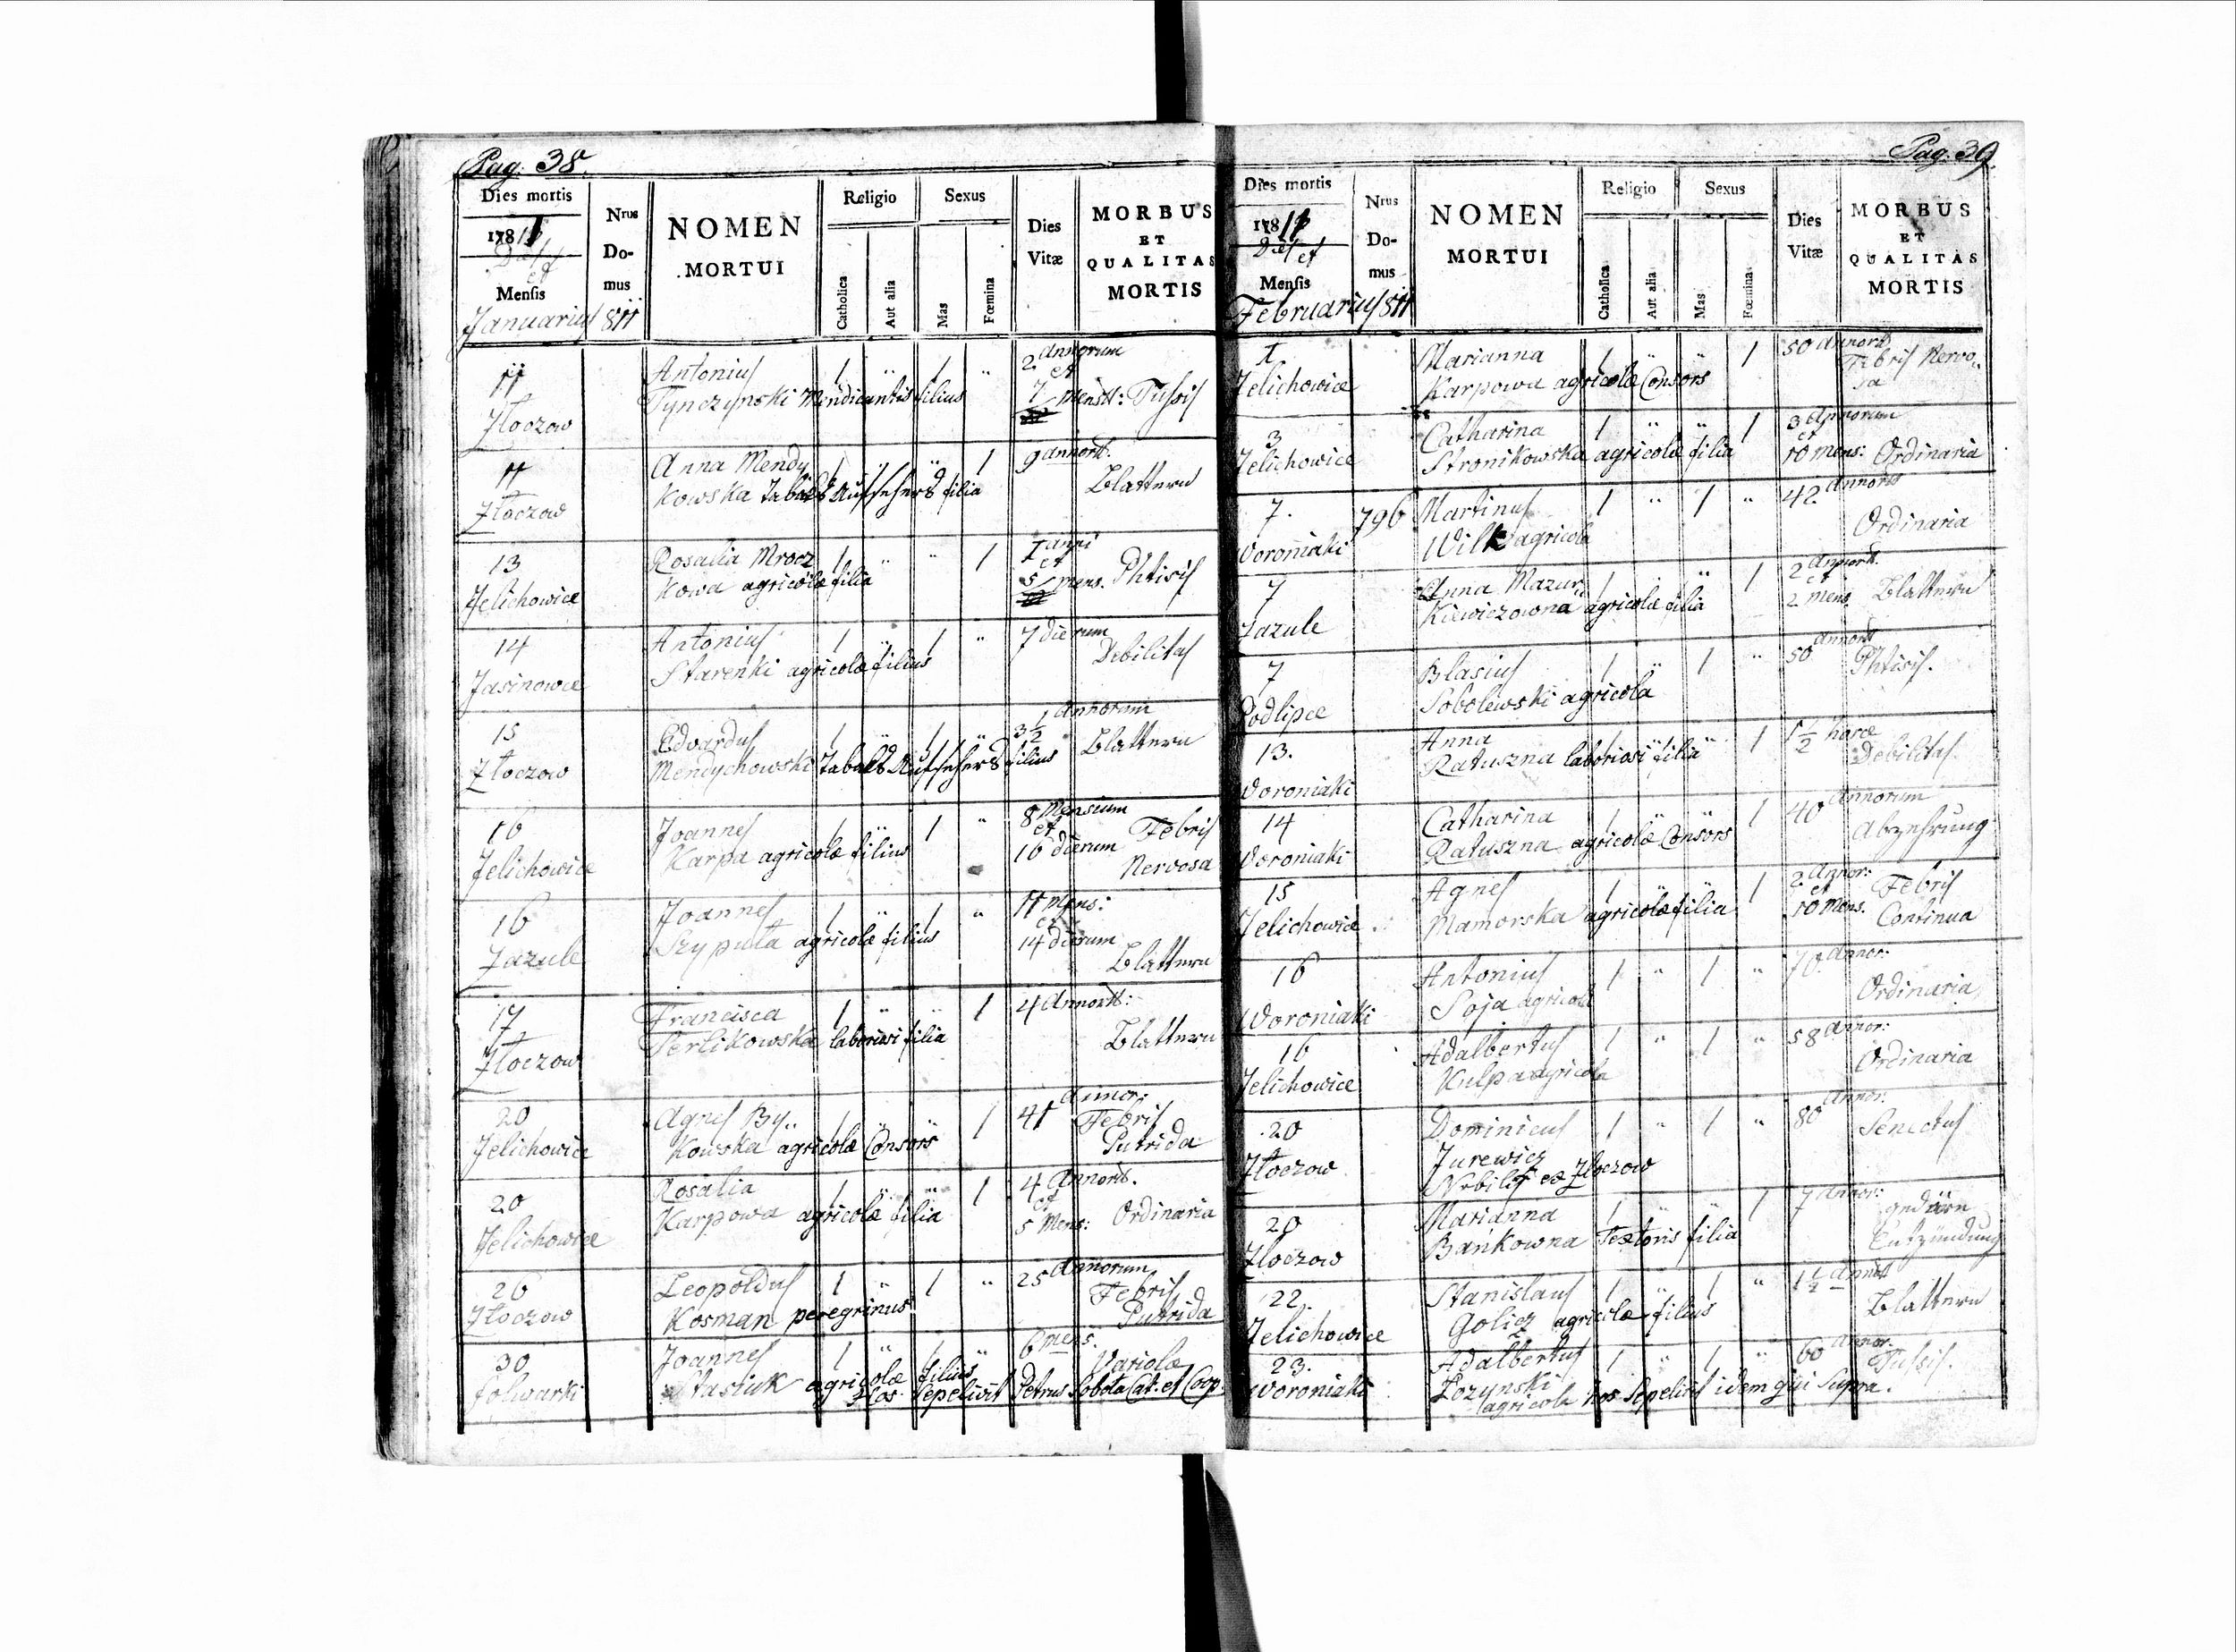 Pag. 38.
Dies mortis
Nrus Domus
NOMEN
MORTUI
Religio
Catholica
Aut alia
Sexus
Mas
Fœmina
Dies
Vitæ
MORBUS
ET
QUALITAS
MORTIS
Mensis
Januarius 811
11 Antonius 1 " 1 " 2 Annorum
et
Złoczow Tynczynski Mendicantis filius 7 Menst: Tussis
11 Anna Mendy 1 " " 1 9 Annorū.
Złoczow kowska Tabaks Aufsehers filia Blattern
13 Rosalia Mrocz 1 " " 1 1 Anni
et
Jelichowice kowa agricolæ filia 5 Mens. Phtisis
14 Antonius 1 " 1 " 7 dierum
Jasinowce Starenki agricolæ filius Debilitas
15 Edvardus 1 " 1 " 3 1/2 Annorum
Złoczow Mendychowski Tabaks Aufsehers filius Blattern
16 Joannes 1 " 1 " 8 Mensium
et Febris
Jelichowice Karpa agricolæ filius 16 dierum Nervosa
16 Joannes 1 " 1 " 11 Mens:
et
Zazule Szypuła agricolæ filius 14 dierum
Blattern
17 Francisca 1 " " 1 4 Annorū:
Złoczow Terlikowska laboriosi filia Blattern
20 Agnes By,, 1 " " 1 41 Annor: Febris
Jelichowice kowska agricolæ Consors Putrida
20 Rosalia 1 " " 1 4 Annorū.
et
Jelichowice Karpowa agricolæ filia 5 Mens: Ordinaria
26 Leopoldus 1 " 1 " 25 Annorum Febris
Złoczow Kosman peregrinus Putrida
30 Joannes 1 " 1 " 6 Mens. Variolæ
folwarki Stasiuk agricolæ filius
Hos Sepelivit Petrus Sobota Cat. et Coop.
Pag. 39.
Dies mortis
Nrus Domus
NOMEN
MORTUI
Religio
Catholica
Aut alia
Sexus
Mas
Fœmina
Dies
Vitæ
MORBUS
ET
QUALITAS
MORTIS
Mensis
Februarius 811
1. Marianna 1 " " 1 50 Annorū Febris Nervo,,
Jelichowice Karpowa agricolæ Consors sa
3 Catharina 1 " " 1 3 Annorum
et
Jelichowice Stronikowska agricolæ filia 10 Mens: Ordinaria
7. 796 Martinus 1 " 1 " 42 Annorū
Woroniaki Wilk agricola Ordinaria
7 Anna Mazur,, 1 " " 1 2 Annorū.
et
Zazule kiewiczowna agricolæ filia 2 Mens Blattern
7 Blasius 1 " 1 " 50 Annorū Phtisis.
Podlipce Sobolewski agricola
13. Anna 1 " " 1 1 1/2 horæ
Woroniaki Ratuszna laboriosi filia Debilitas
14 Catharina 1 " " 1 40 Annorum
Woroniaki Ratuszna agricolæ Consors Abzehrung
15 Agnes 1 " " 1 2 Annor: Febris
et
Jelichowice Mamorska agricolæ filia 10 Mens. Continua
16 Antonius 1 " 1 " 70 Annor:
Woroniaki Soja agricola Ordinaria
16 Adalbertus 1 " 1 " 58 Annor:
Jelichowice Kulpa agricola Ordinaria
20 Dominicus 1 " 1 " 80 Annor: Senectus
Złoczow Jurewicz
Nobilis ex Złoczow
20 Marianna 1 " " 1 7 Annor:
Złoczow Bankowna Textoris filia Entzündung
22. Stanislaus 1 " 1 " 1 1/2 Annorū
Jelichowice Golicz agricolæ filius Blattern
23. Adalbertus 1 " 1 " 60 Annor. Tussis.
Woroniaki Łozynski
agricola hos Sepelivit idem qui Supra.